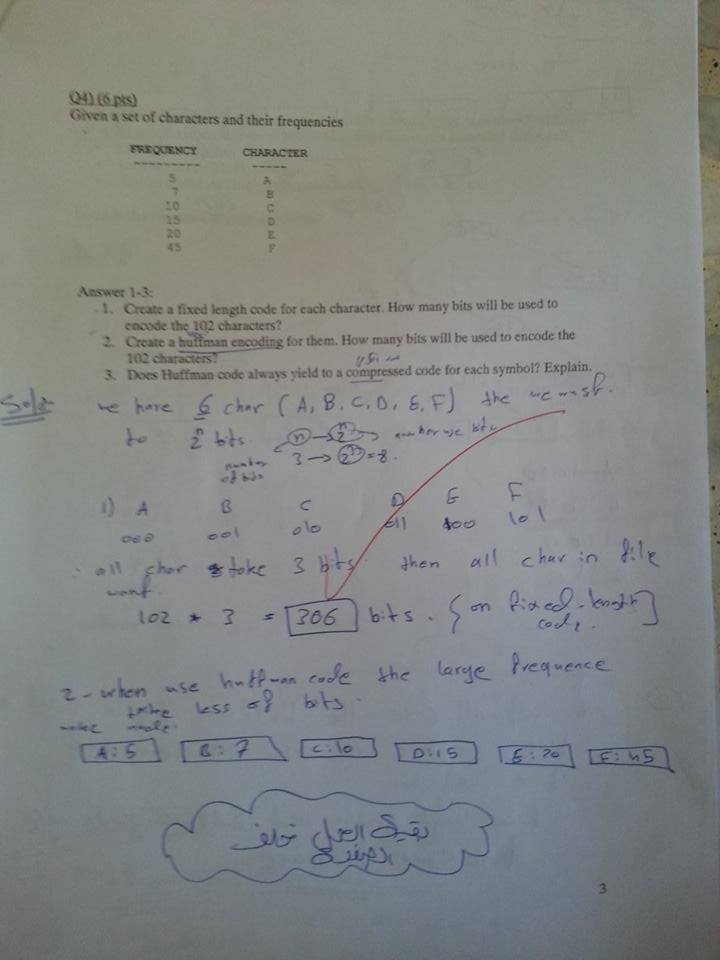 Q4) (6 pts)
Given a set of characters and their frequencies
FREQUENCY CHARACTER
--------- -----
5 A
7 B
10 C
15 D
20 E
45 F
Answer 1-3:
1. Create a fixed length code for each character. How many bits will be used to
encode the 102 characters?
2. Create a huffman encoding for them. How many bits will be used to encode the
102 characters?
3. Does Huffman code always yield to a compressed code for each symbol? Explain.
we have 6 char (A, B, C, D, E, F) the we must
to 2^n bits n → 2^n number use bits
number of bits 3 → 2^3 = 8.
1) A B C D E F
000 001 010 011 100 101
∴ all char take 3 bits. then all char in file
want
102 * 3 = 306 bits. { on fixed-length
code. ]
2- when use huffman code the large frequence
take less of bits.
A:5 B:7 C:10 D:15 E:20 F:45
بقية الحل خلف
الورقة
3